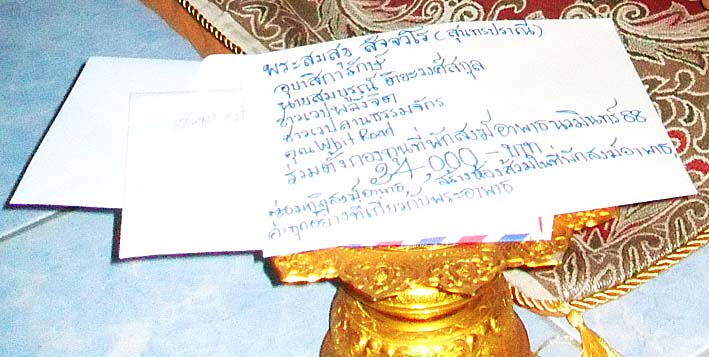 พระสมสุข สัจจวโร (สุนทรปราณี)
อุบาสิการักษ์
นายสมบูรณ์ ติยะวงศ์สกุล
ชาวเวปพลังจิต
ชาวเวปลานธรรมจักร
คุณ Whit Road
ร่วมตั้งกองทุนที่พักสงฆ์อาพาธนวมินทร์ 88
24,000.- บาท
กุฏิสงฆ์อาพาธ, สร้างห้องส้วมในที่พักสงฆ์อาพาธ,
ทุกอย่างที่เกี่ยวกับพระอาพาธ